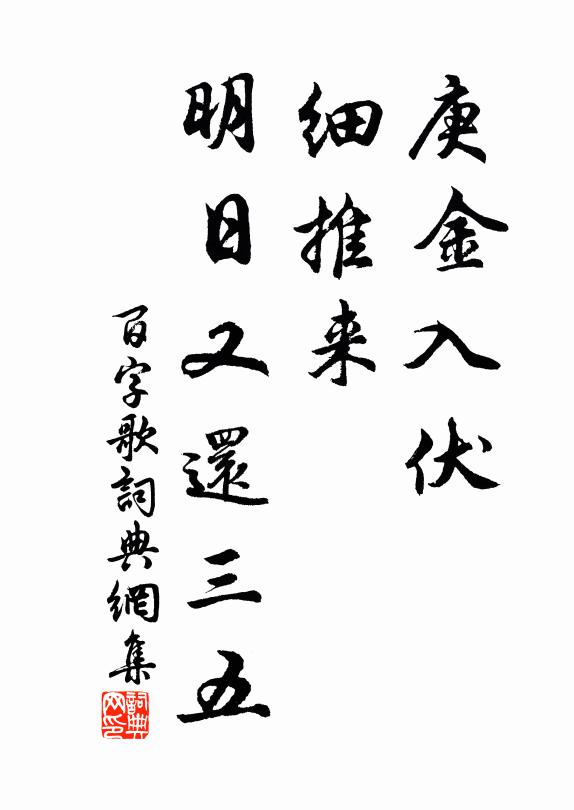 庚金入伏
細推来
明日又還三五
百字歌詞典網集
詞典
网印